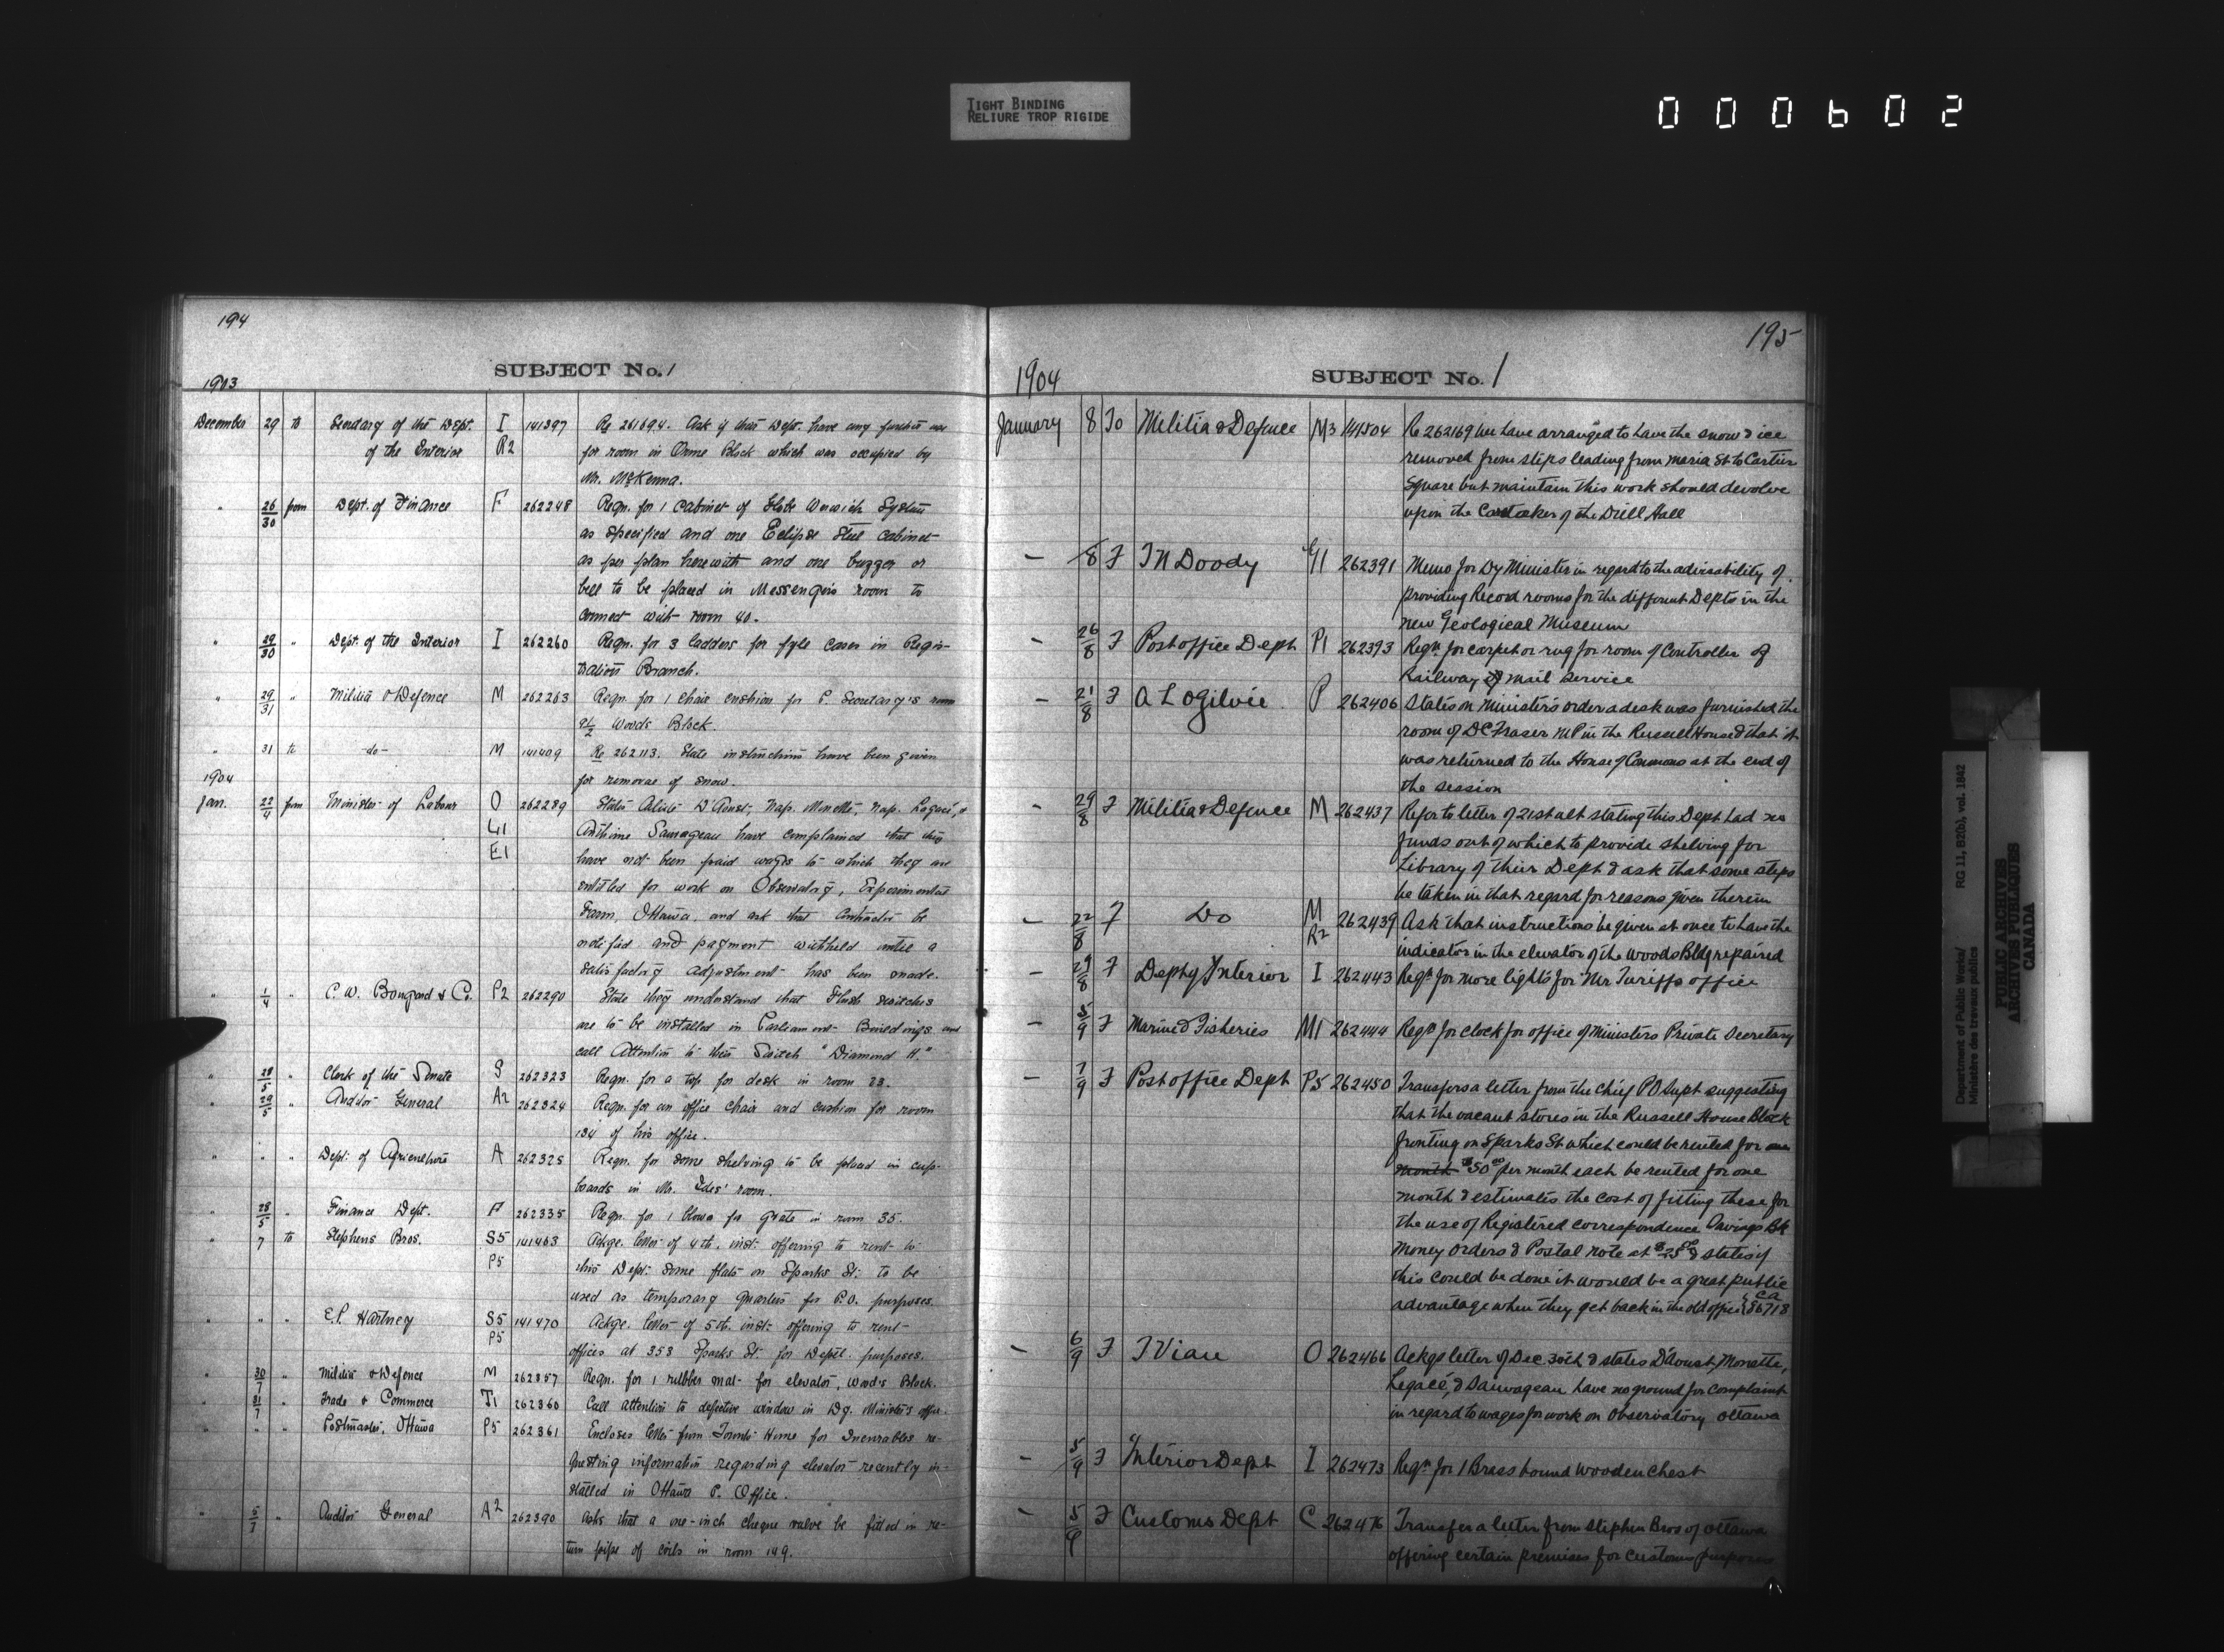 TIGHT BINDING
RELIURE TROP RIGIDE
000602
194
SUBJECT No. 1
1903
December 29 to Secretary of the Dept. I 141397 Re 261694. Ask if this Dept. have any further use
of the Interior R2 for room in Orme Block which was occupied by
Mr. McKenna.
" 26/30 from Dept. of Finance F 262248 Reqn. for 1 Cabinet of Globe Wernich System
as specified and one Eclipse Steel Cabinet
as per plan herewith and one buzzer or
bell to be placed in Messengers room to
connect with room 40.
" 29/30 " Dept. of the Interior I 262260 Reqn. for 3 ladders for fyle cases in Regis-
tration Branch.
" 29/31 " Militia & Defence M 262263 Reqn. for 1 chair cushion for P. Secretary's room
Woods Block.
" 31 to -do- M 141409 Re 262113. State instructions have been given
for removal of snow.
1904
Jan. 22/4 from Minister of Labour O 262289 States D'Aoust, Nap. Monette, Nap. Legacé, &
G1 Anthime Sauvageau have complained that they
E1 have not been paid wages to which they are
entitled for work on Observatory, Experimental
Farm, Ottawa, and ask that Contractor be
notified and payment withheld until a
satisfactory adjustment has been made.
" 1/4 " C. W. Bongard & Co. P2 262290 State they understand that Flush switches
are to be installed in Parliament Buildings and
call Attention to their Switch "Diamond H."
" 28/5 " Clerk of the Senate S 262323 Reqn. for a top for desk in room 23.
" 29/5 " Auditor General A2 262324 Reqn. for an office chair and cushion for room
134 of his office.
" " " Dept. of Agriculture A 262325 Reqn. for some shelving to be placed in cup-
boards in Mr. room.
" 28/5 " Finance Dept. F 262335 Reqn. for 1 blower for grate in room 35.
" 7 to Stephens Bros. S5 141463 Ackge. letter of 4th. inst. offering to rent to
P5 this Dept. some flats on Sparks St. to be
used as temporary quarters for P.O. purposes.
" " " E.P. Hartney S5 141470 Ackge. letter of 5th. inst. offering to rent
P5 offices at 353 Sparks St. for Deptl. purposes.
" 30/7 " Militia & Defence M 262357 Reqn. for 1 rubber mat for elevator, Woods Block.
" 31/7 " Trade & Commerce T1 262360 Call attention to defective window in Dy. Minister's office.
" " " Postmaster, Ottawa P5 262361 Encloses letter from Home for Incurables re-
questing information regarding elevator recently in-
stalled in Ottawa P. Office.
" 5/7 " Auditor General A2 262390 Asks that a one-inch cheque valve be fitted in re-
turn pipe of coils in room 149.
195
1904 SUBJECT No. 1
January 8 To Militia & Defence M3 141504 Re 262169 we have arranged to have the snow & ice
removed from steps leading from Maria St to Cartier
Square but maintain this work should devolve
upon the Caretaker of the Drill Hall
— 8 F J N Doody G1 262391 Memo for Dy Minister in regard to the advisability of
providing Record rooms for the different Depts in the
new Geological Museum
— 26/8 F Post office Dept P1 262393 Reqn for carpet or rug for room of Controller of
Railway mail service
— 21/8 F A L Ogilvie P 262406 States on Ministers order a desk was furnished the
room of D C Fraser MP in the Russell House & that it
was returned to the House of Commons at the end of
the session
— 29/8 F Militia & Defence M 262437 Refer to letter of 21st ult stating this Dept had no
funds out of which to provide shelving for
Library of their Dept & ask that some steps
be taken in that regard for reasons given therein
— 22/8 F Do M 262439 Ask that instructions be given at once to have the
R2 indicator in the elevator of the Woods Bldg repaired
— 29/8 F Depty Interior I 262443 Reqn for more lights for Mr Turiffs office
— 5/9 F Marine & Fisheries M1 262444 Reqn for clock for office of Ministers Private Secretary
— 7/9 F Post office Dept P5 262450 Transfers a letter from the Chief PO Supt suggesting
that the vacant stores in the Russell House Block
fronting on Sparks St which could be rented for one
month $50 00 per month each be rented for one
month & estimates the cost of fitting these for
the use of Registered correspondence Savings Bk
Money Orders & Postal note at $25 00 & states if
this could be done it would be a great public
advantage when they get back in the old office Ca 86718
— 6/9 F J Viau O 262466 Ackgs letter of Dec 30th & states D'aoust, Monette,
Legacé, & Sauvageau have no ground for complaint
in regard to wages for work on Observatory Ottawa
— 5/9 F Interior Dept I 262473 Reqn for 1 Brass bound wooden chest
— 5/9 F Customs Dept C 262476 Transfer a letter from Stephen Bros of Ottawa
offering certain premises for Customs purposes
Department of Public Works/ RG 11, B2(b), vol. 1842
Ministère des travaux publics
PUBLIC ARCHIVES
ARCHIVES PUBLIQUES
CANADA